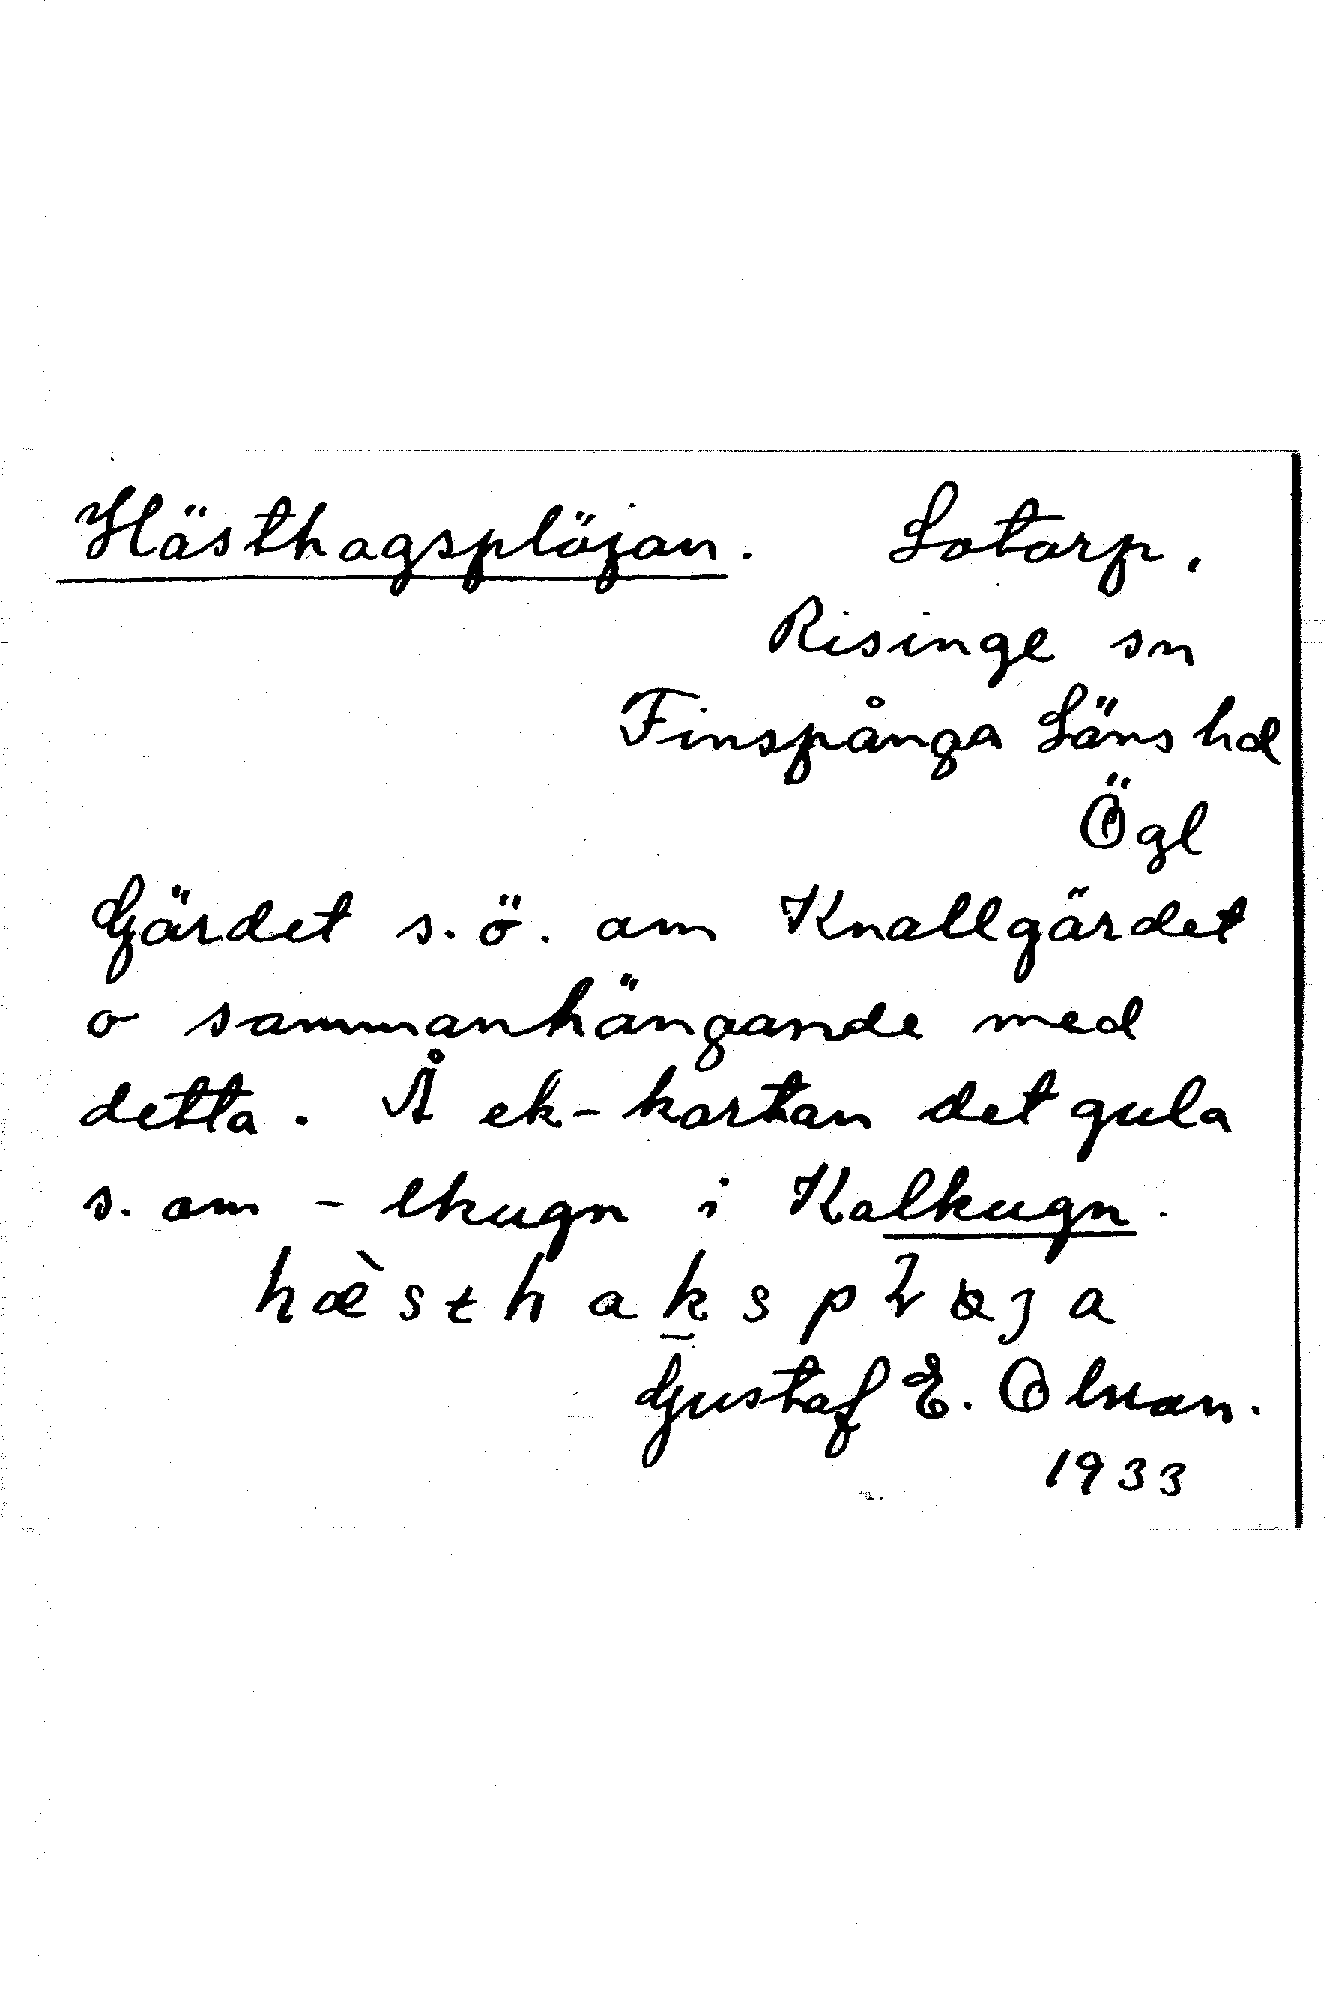 Hästhagsplöjan. Lotorp.
Risinge sn
Finspånga Läns hd
Ögl
Gärdet s.ö. om Knallgärdet
o sammanhängande med
detta. Å ek-kartan det gula
s. om - lkugn i Kalkugn.
hæ̀sthaksp
Gustaf E. Olsson.
1933